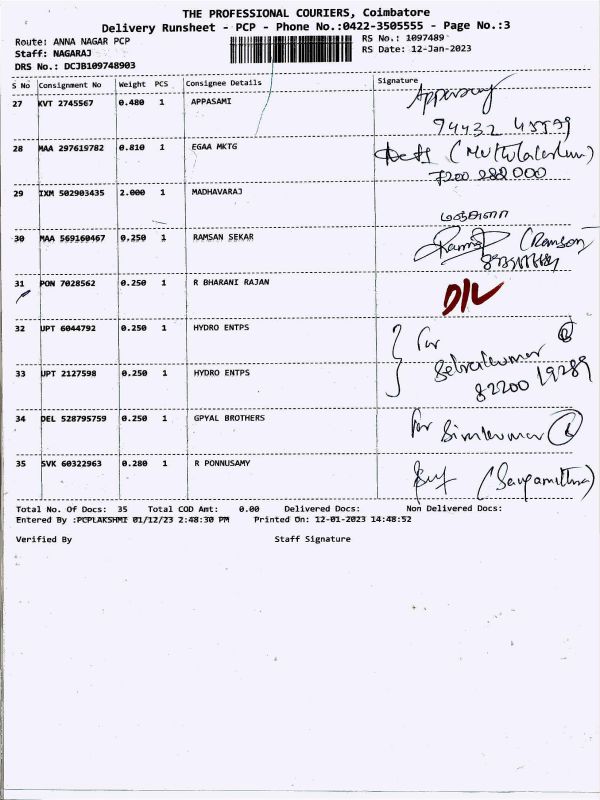 THE PROFESSIONAL COURIERS, Coimbatore
Delivery Runsheet - PCP - Phone No.:0422-3505555 - Page No.:3
Route: ANNA NAGAR PCP
RS No.: 1097489
Staff: NAGARAJ
RS Date: 12-Jan-2023
DRS No.: DCJB109748903
S No Consignment No Weight PCS Consignee Details Signature
27 KVT 2745567 0.480 1 APPASAMI Appasamy
28 MAA 297619782 0.810 1 EGAA MKTG
7200 288 000
29 IXM 502903435 2.000 1 MADHAVARAJ
30 MAA 569160467 0.250 1 RAMSAN SEKAR (Ramson)
31 PON 7028562 0.250 1 R BHARANI RAJAN D/L
32 UPT 6044792 0.250 1 HYDRO ENTPS For
Selvakumar
33 UPT 2127598 0.250 1 HYDRO ENTPS 82200 19289
34 DEL 528795759 0.250 1 GPYAL BROTHERS For
35 SVK 60322963 0.280 1 R PONNUSAMY (Sangamithra)
Total No. Of Docs: 35 Total COD Amt: 0.00 Delivered Docs: Non Delivered Docs:
Entered By :PCPLAKSHMI 01/12/23 2:48:30 PM Printed On: 12-01-2023 14:48:52
Verified By Staff Signature